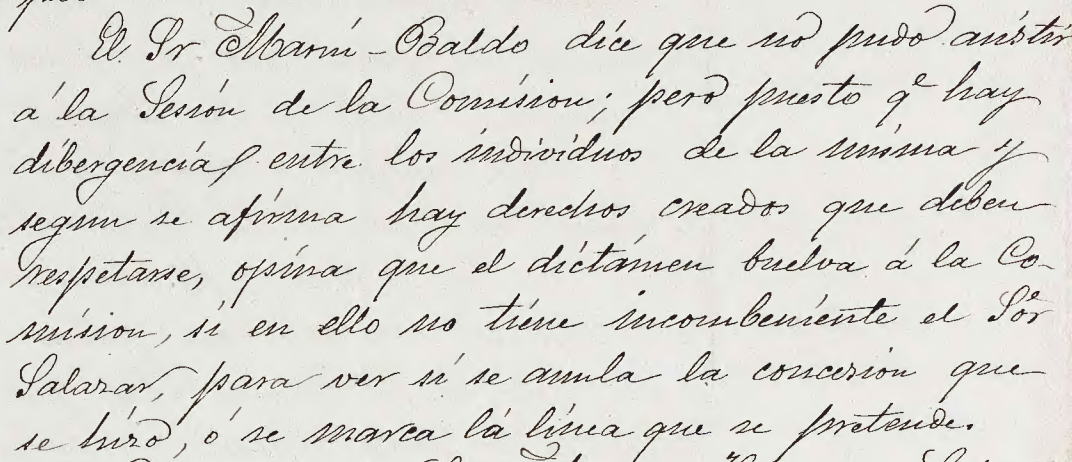 El Sr Marin-Baldo dice que no pudo asistir
á la Sesión de la Comision; pero puesto qe hay
dibergencia entre los individuos de la misma y
segun se afirma hay derechos creados que deben
respetarse, opina que el dictámen buelva á la Co-
mision, si en ello no tiene incombeniente el Sor
Salazar, para ver si se anula la concesion que
se hizo, ó se marca la línea que se pretende.